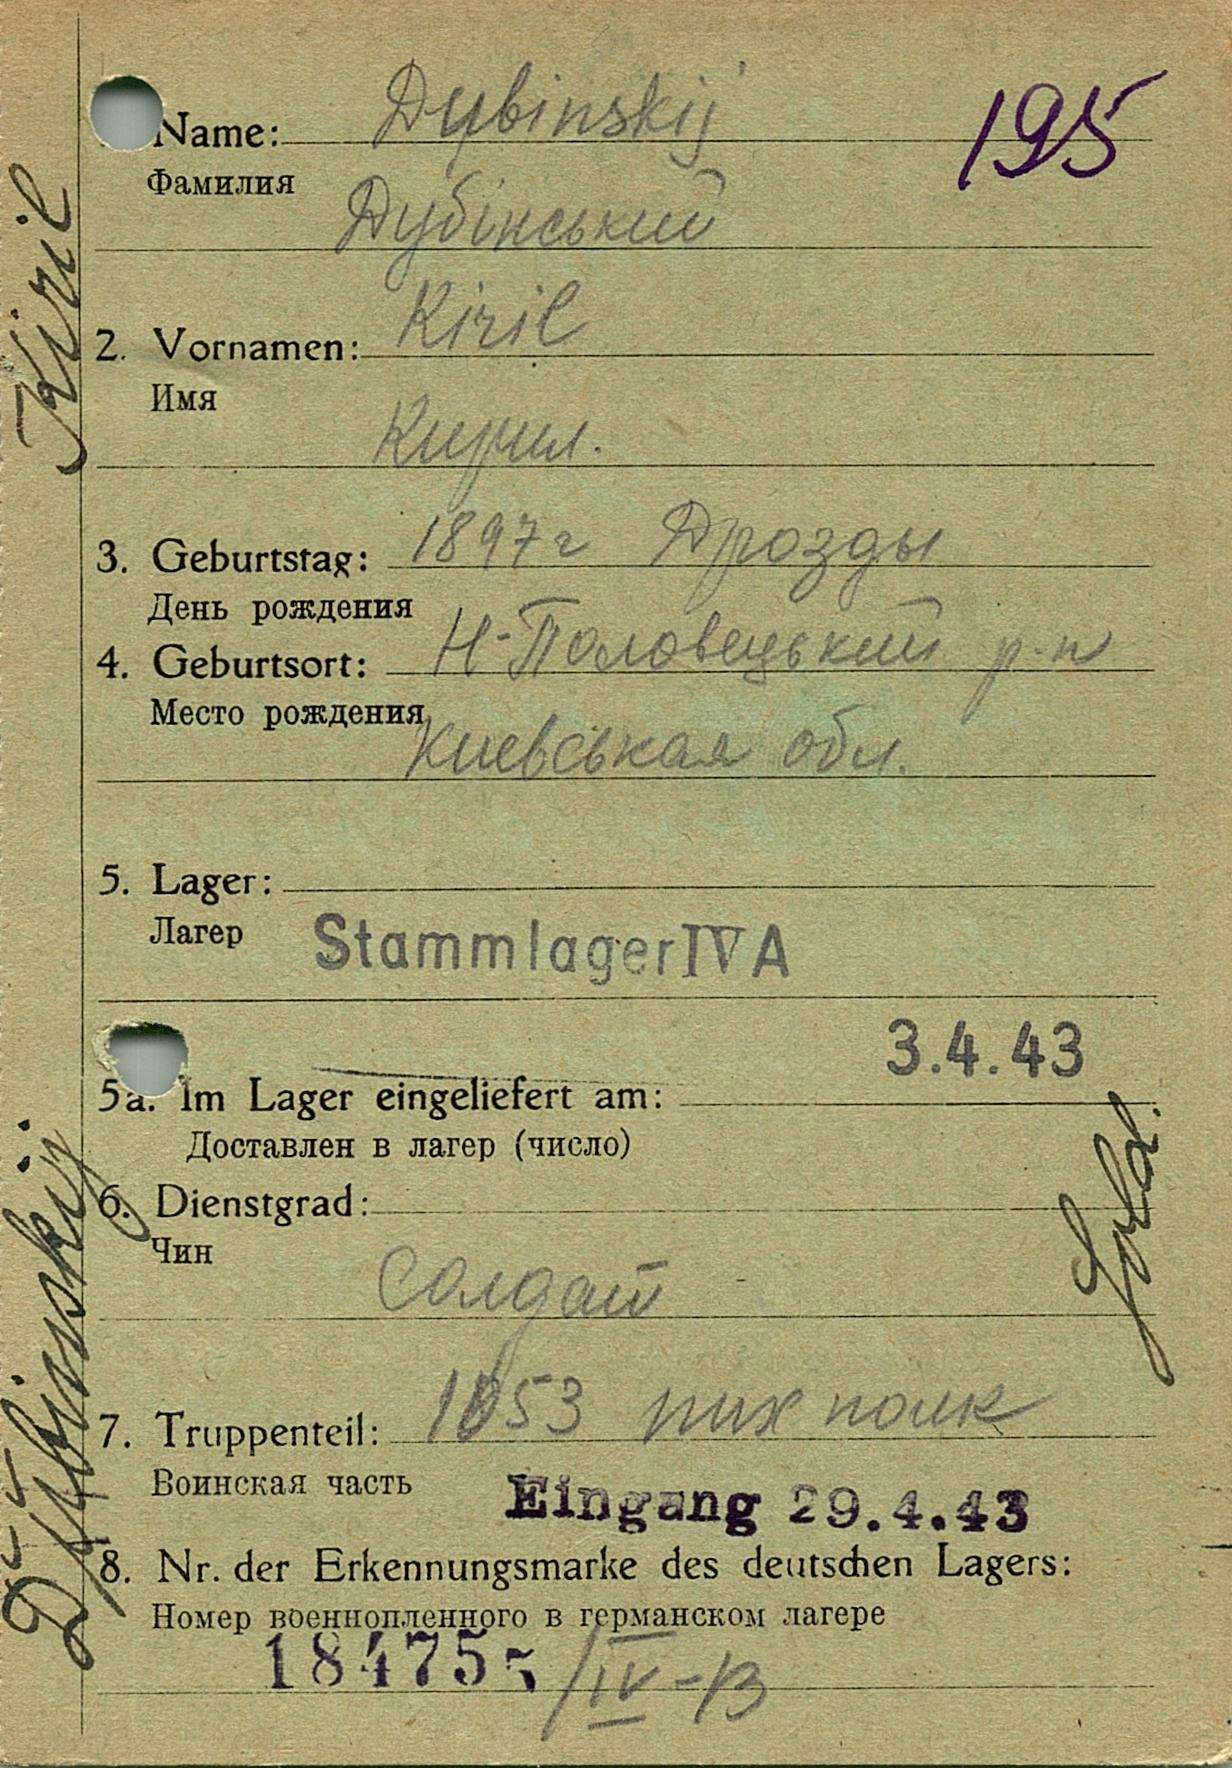 195
Name: Dybinskij
Фамилия
Дубінський
2. Vornamen: Kiril
Имя
Кирил.
3. Geburtstag: 1897г Дрозды
День рождения
4. Geburtsort: Н-Половецький р-н
Место рождения
Киевська​я обл.
5. Lager:
Лагер
Stammlager IV A
3.4.43
5a. Im Lager eingeliefert am:
Доставлен в лагер (число)
6. Dienstgrad:
Чин
солдат
7. Truppenteil: 1053 пих полк
Воинская часть
Eingang 29.4.43
8. Nr. der Erkennungsmarke des deutschen Lagers:
Номер военнопленного в германском лагере
184755/IV-B
Dybinskij Kiril
Sold.